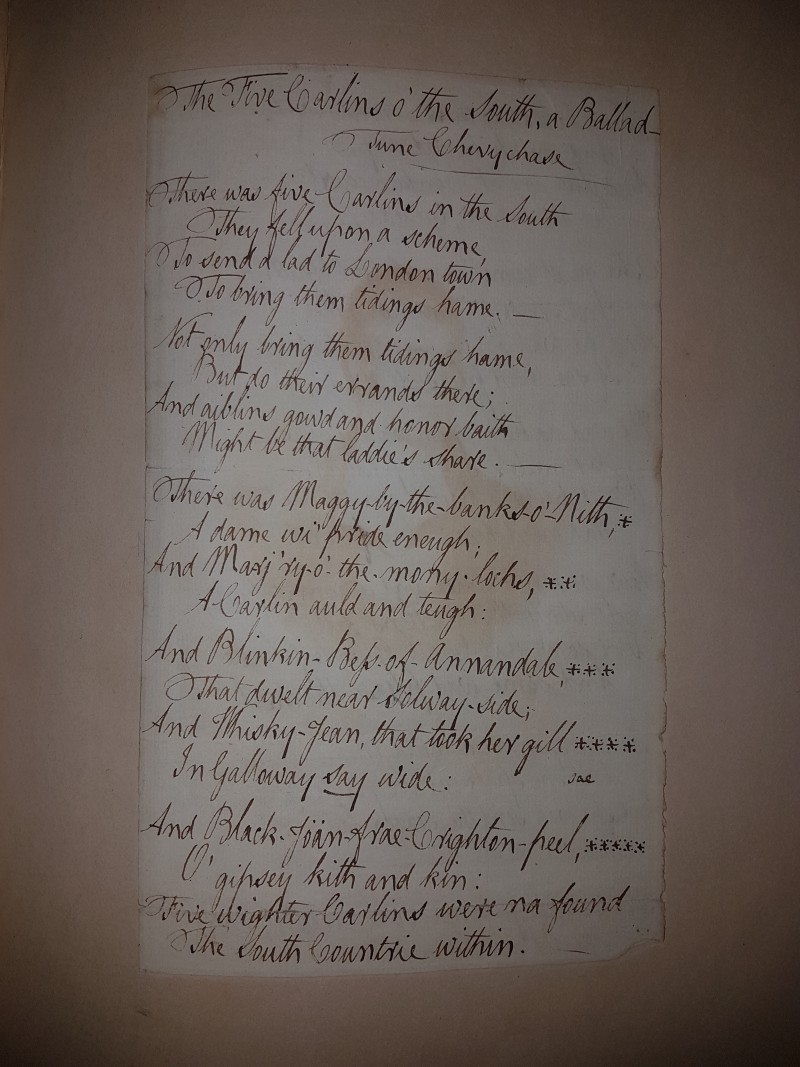 The Five Carlins o' the South, a Ballad—
Tune Chevychase
There was five Carlins in the South
They fell upon a scheme,
To send a lad to London town
To bring them tidings hame. —
Not only bring them tidings hame,
But do their errands there;
And aiblins gowd and honor baith
Might be that laddie's share. —
There was Maggy-by-the-banks-o'-Nith, *
A dame wi' pride eneugh;
And Marj'ry-o'-the-mony-lochs, **
A Carlin auld and teugh:
And Blinkin-Beſs-of-Annandale, ***
That dwelt near Solway-side;
And Whisky-Jean, that took her gill ****
In Galloway say wide:
sae
And Black-Jöän-frae-Crighton-peel, *****
O' gipsey kith and kin:
Five wighter Carlins were na found
The South Countrie within. —